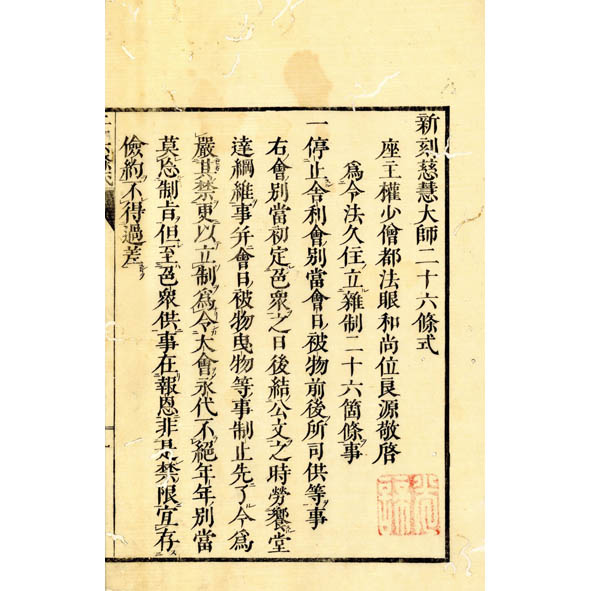 新刻慈慧大師二十六條式
座主權少僧都法眼和尚位良源敬啓
爲令法久住立雜制二十六箇條事
一停止舍利會別當會日被物前後所司供等事
右會別當初定色衆之日後結公文之時勞饗堂
達綱維事并會日被物曳物等事制止先了今爲
嚴其禁更以立制爲令大會永代不絕年年別當
莫忩制旨但至色衆供事在報恩非是禁限宜存
儉約不得過差